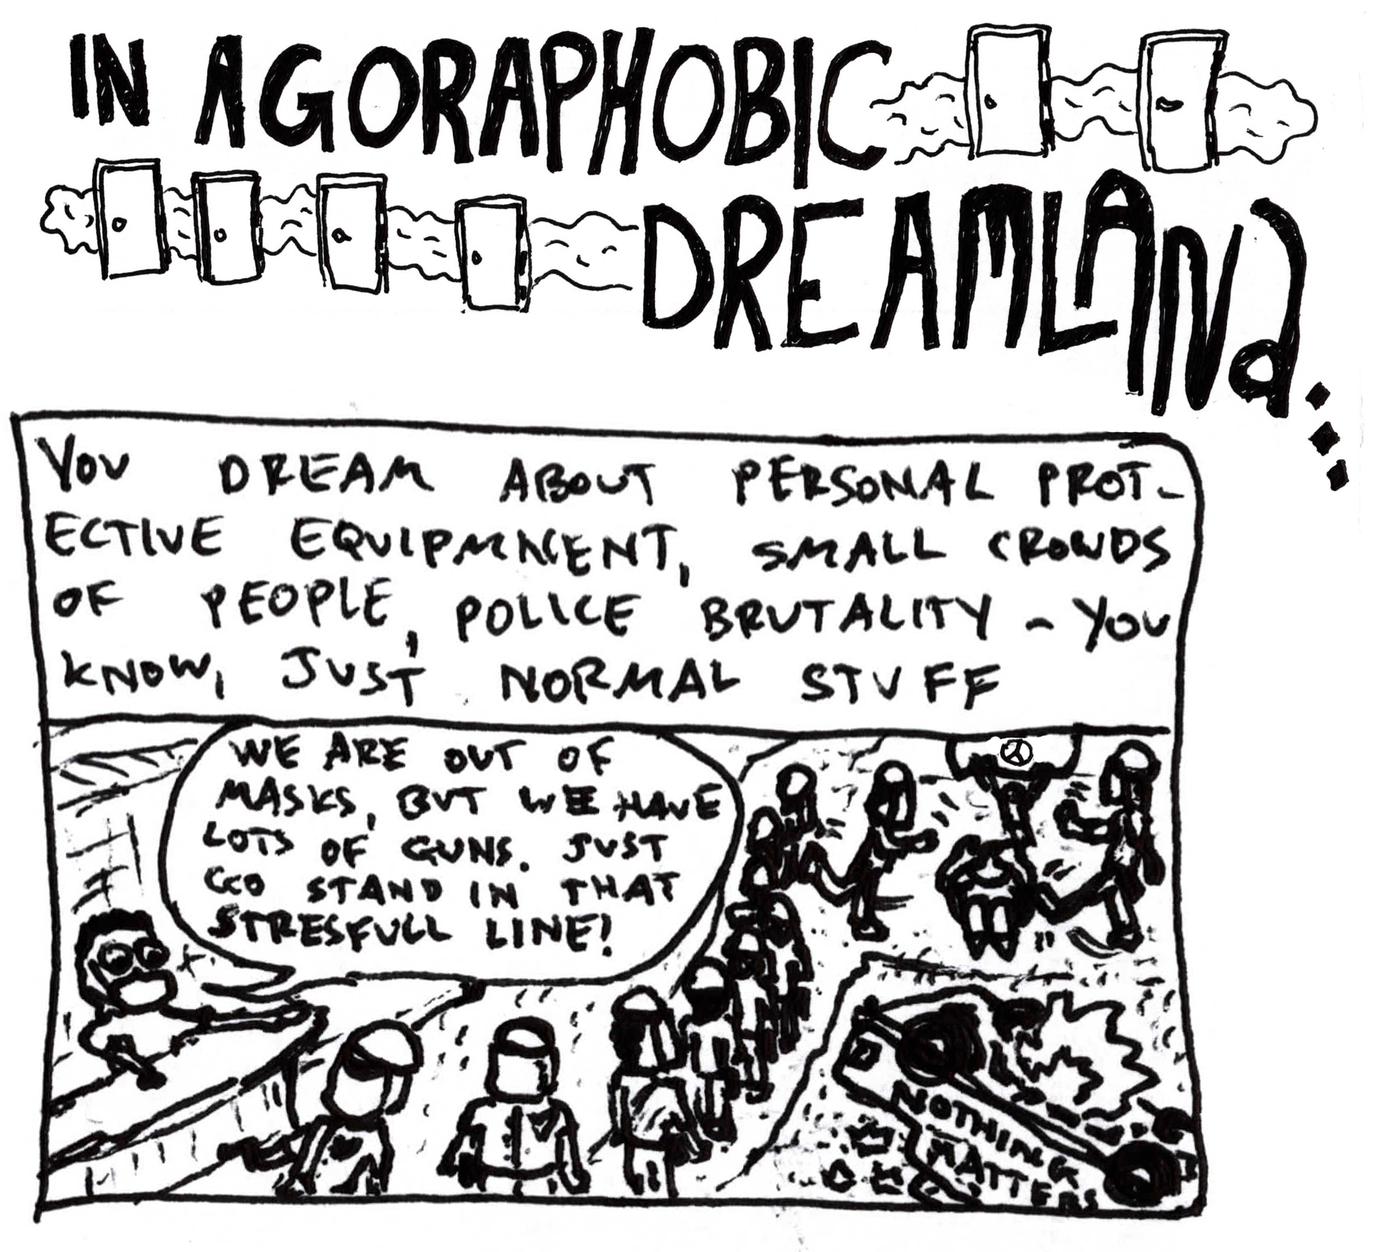 IN AGORAPHOBIC
DREAMLANd...
YOU DREAM ABOUT PERSONAL PROT-
ECTIVE EQUIPMNENT, SMALL CROWDS
OF PEOPLE, POLICE BRUTALITY - YOU
KNOW, JUST NORMAL STUFF
WE ARE OUT OF
MASKS, BUT WE HAVE
LOTS OF GUNS. JUST
GO STAND IN THAT
STRESFULL LINE!
NOTHING
MATTERS